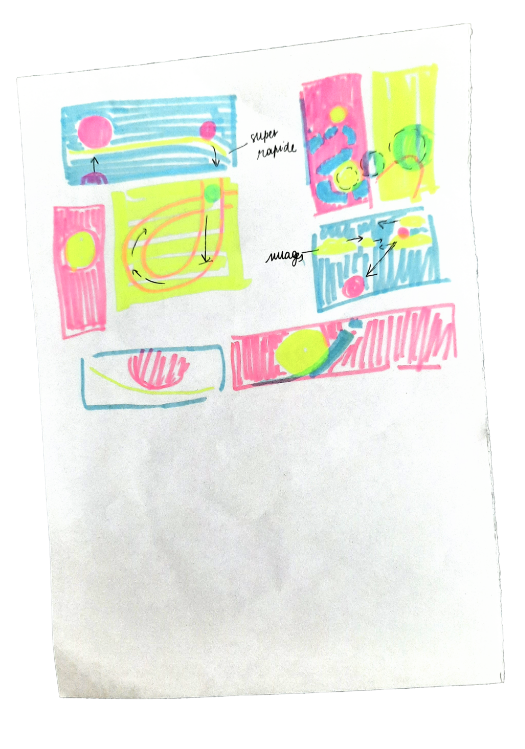 super
rapide
nuages